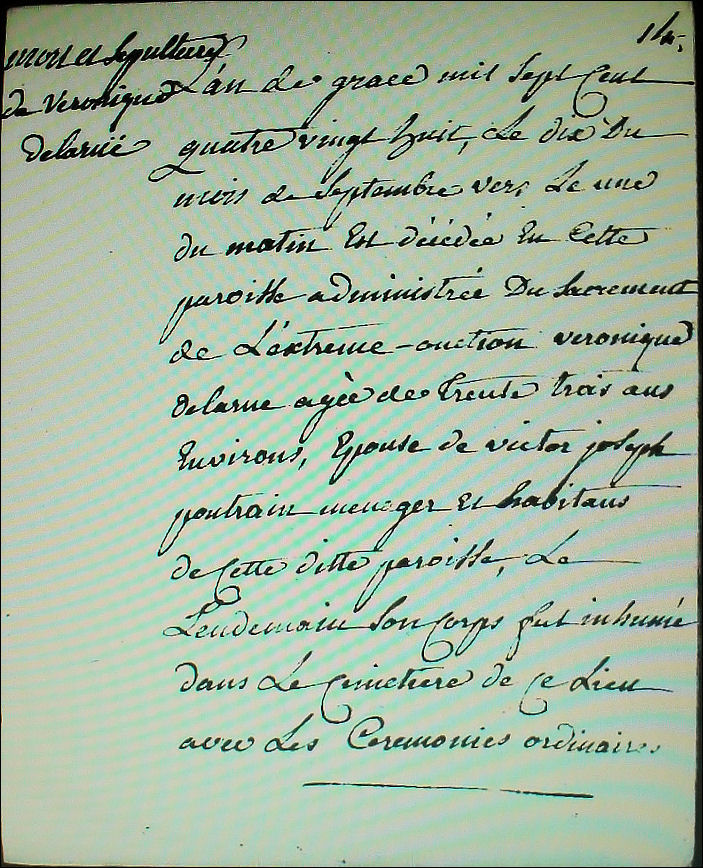 14.
mort et sepulture
de veronique
delarüe
L'an de grace mil sept Cent
quatre vingt huit, Le dix Du
mois de septembre vers Le une
du matin Est décédée En Cette
paroisse administrée Du sacrement
de L'extreme-onction veronique
delarue agée de trente trois ans
Environs, Epouse de victor joseph
poutrain menager Et habitans
de Cette ditte paroisse, Le
Lendemain son Corps fut inhumé
dans Le Cimetiere de Ce Lieu
avec Les Ceremonies ordinaires